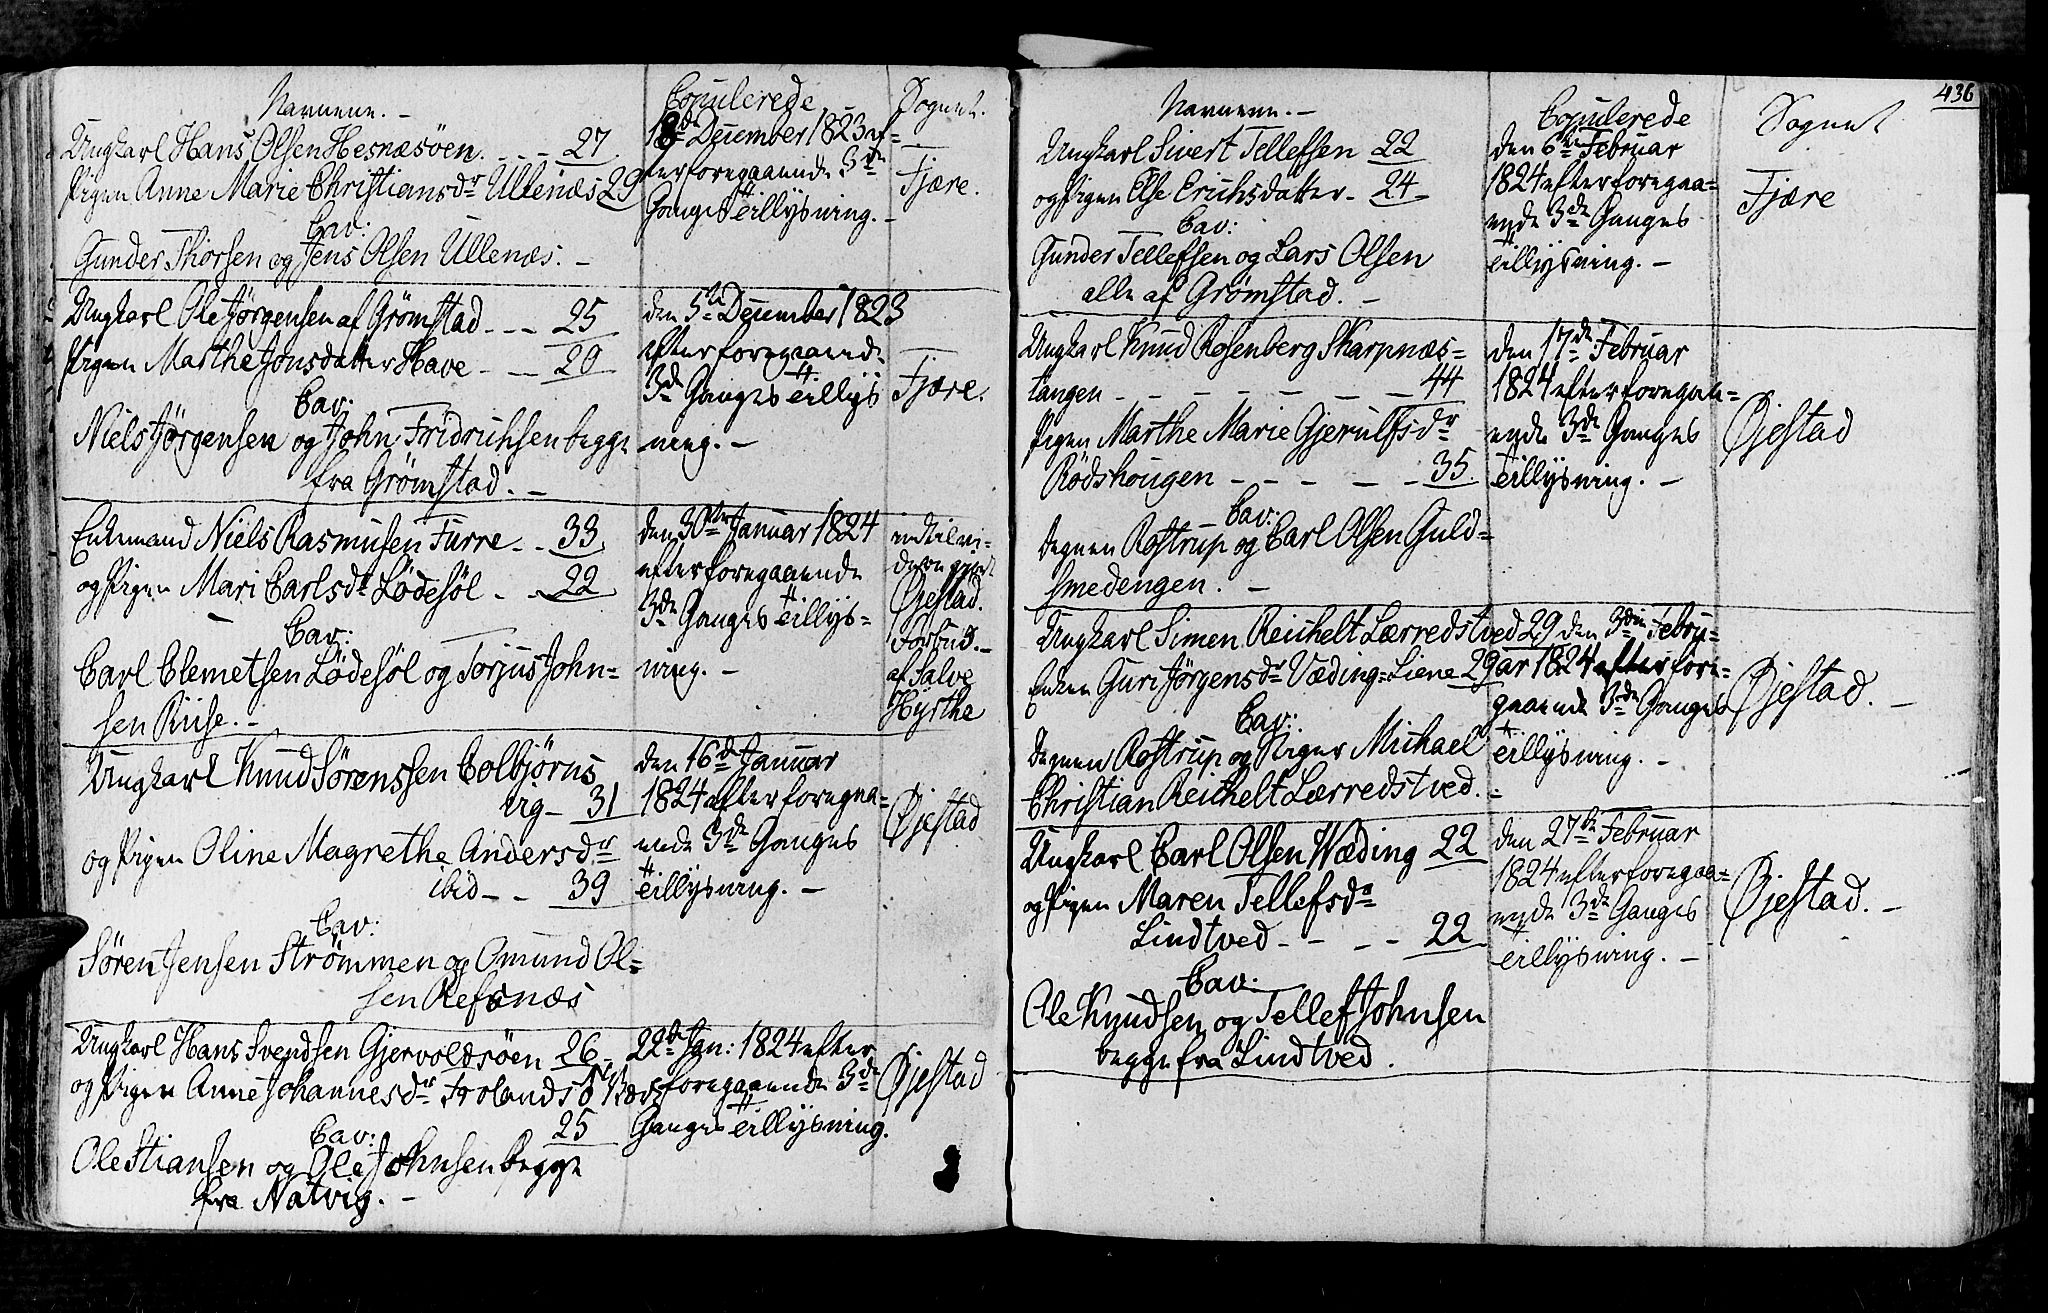 Navnene. -
Copulerede
Sognet.
Ungkarl Hans Olsen Hesnæsöen. - - - 27
Pigen Anne Marie Christiansdr Ullenæs 29
Cav:
Gunder Thorsen og Jens Olsen Ullenæs. -
18de December 1823 ef=
terforegaaende 3de
Ganges Tillysning. -
Fjære.
Ungkarl Ole Jörgensen af Grömstad - - - 25
Pigen Marthe Jonsdatter Have - - - 20
Cav:
Niels Jörgensen og John Fridrichsen begge
fra Grömstad. -
den 5te December 1823
efter foregaaende
3de Ganges Tillys
ning. -
Fjære.
Enkemand Niels Rasmusen Furre - - 33
og Pigen Mari Carlsdr Lödesöl - - 22
Cav:
Carl Clemetsen Lödesöl og Torjus John=
sen Riise. -
den 30te Januar 1824
efter foregaaende
3de Ganges Tillys=
ning. -
indtil vi-
dere gjort
Øjestad.
Forbud -
af Salve
Hyrthe
Ungkarl Knud Sörenssen Colbjörns
vig - 31
og Pigen Oline Magrethe Andersdr
ibid - - 39
Cav:
Sören Jensen Strömmen og Omund Ol=
sen Refsnæs
den 16de Januar
1824 efter foregaa=
ende 3de Ganges
Tillysning. -
Øjestad
Ungkarl Hans Svendsen Gjervoldsöen 26 -
og Pigen Anne Johannesdr Frolands
25
Cav:
Ole Stiansen og Ole Johnsen begge
fra Natvig. -
22de Jan: 1824 efter
foregaaende 3de
Ganges Tillysning.
Øjestad
436
Navnene. -
Copulerede
Sognet
Ungkarl Sivert Tellefsen 22
og Pigen Else Erichsdatter - 24
Cav:
Gunder Tellefsen og Lars Olsen
alle af Grömstad. -
den 6te Februar
1824 efter foregaa=
ende 3de Ganges
Tillysning. -
Fjære
Ungkarl Knud Rosenberg Skarpnæs=
tangen - - - - - - 44
Pigen Marthe Marie Gjerulfsdr
Rödshougen - - - - - 35.
Cav:
Degnen Rostrup og Carl Olsen Guld=
smedengen. -
den 17de Februar
1824 efter foregaa=
ende 3de Ganges
Tillysning. -
Øjestad
Ungkarl Simen Reichelt Lærredstved 29
Enken Guri Jörgensdr Væding=Liene 29
Cav:
Degnen Rostrup og Niger Michael
Christian Reichelt Lærredstved. -
den 3die Febru=
ar 1824 efter fore=
gaaende 3de Ganges
Tillysning. -
Øjestad. -
Ungkarl Carl Olsen Wæding 22
og Pigen Maren Tellefsdr
Lindtved - - - - 22
Cav:
Ole Knudsen og Tellef Johnsen
begge fra Lindtved.
den 27de Februar
1824 efter foregaa=
ende 3de Ganges
Tillysning. -
Øjestad. -